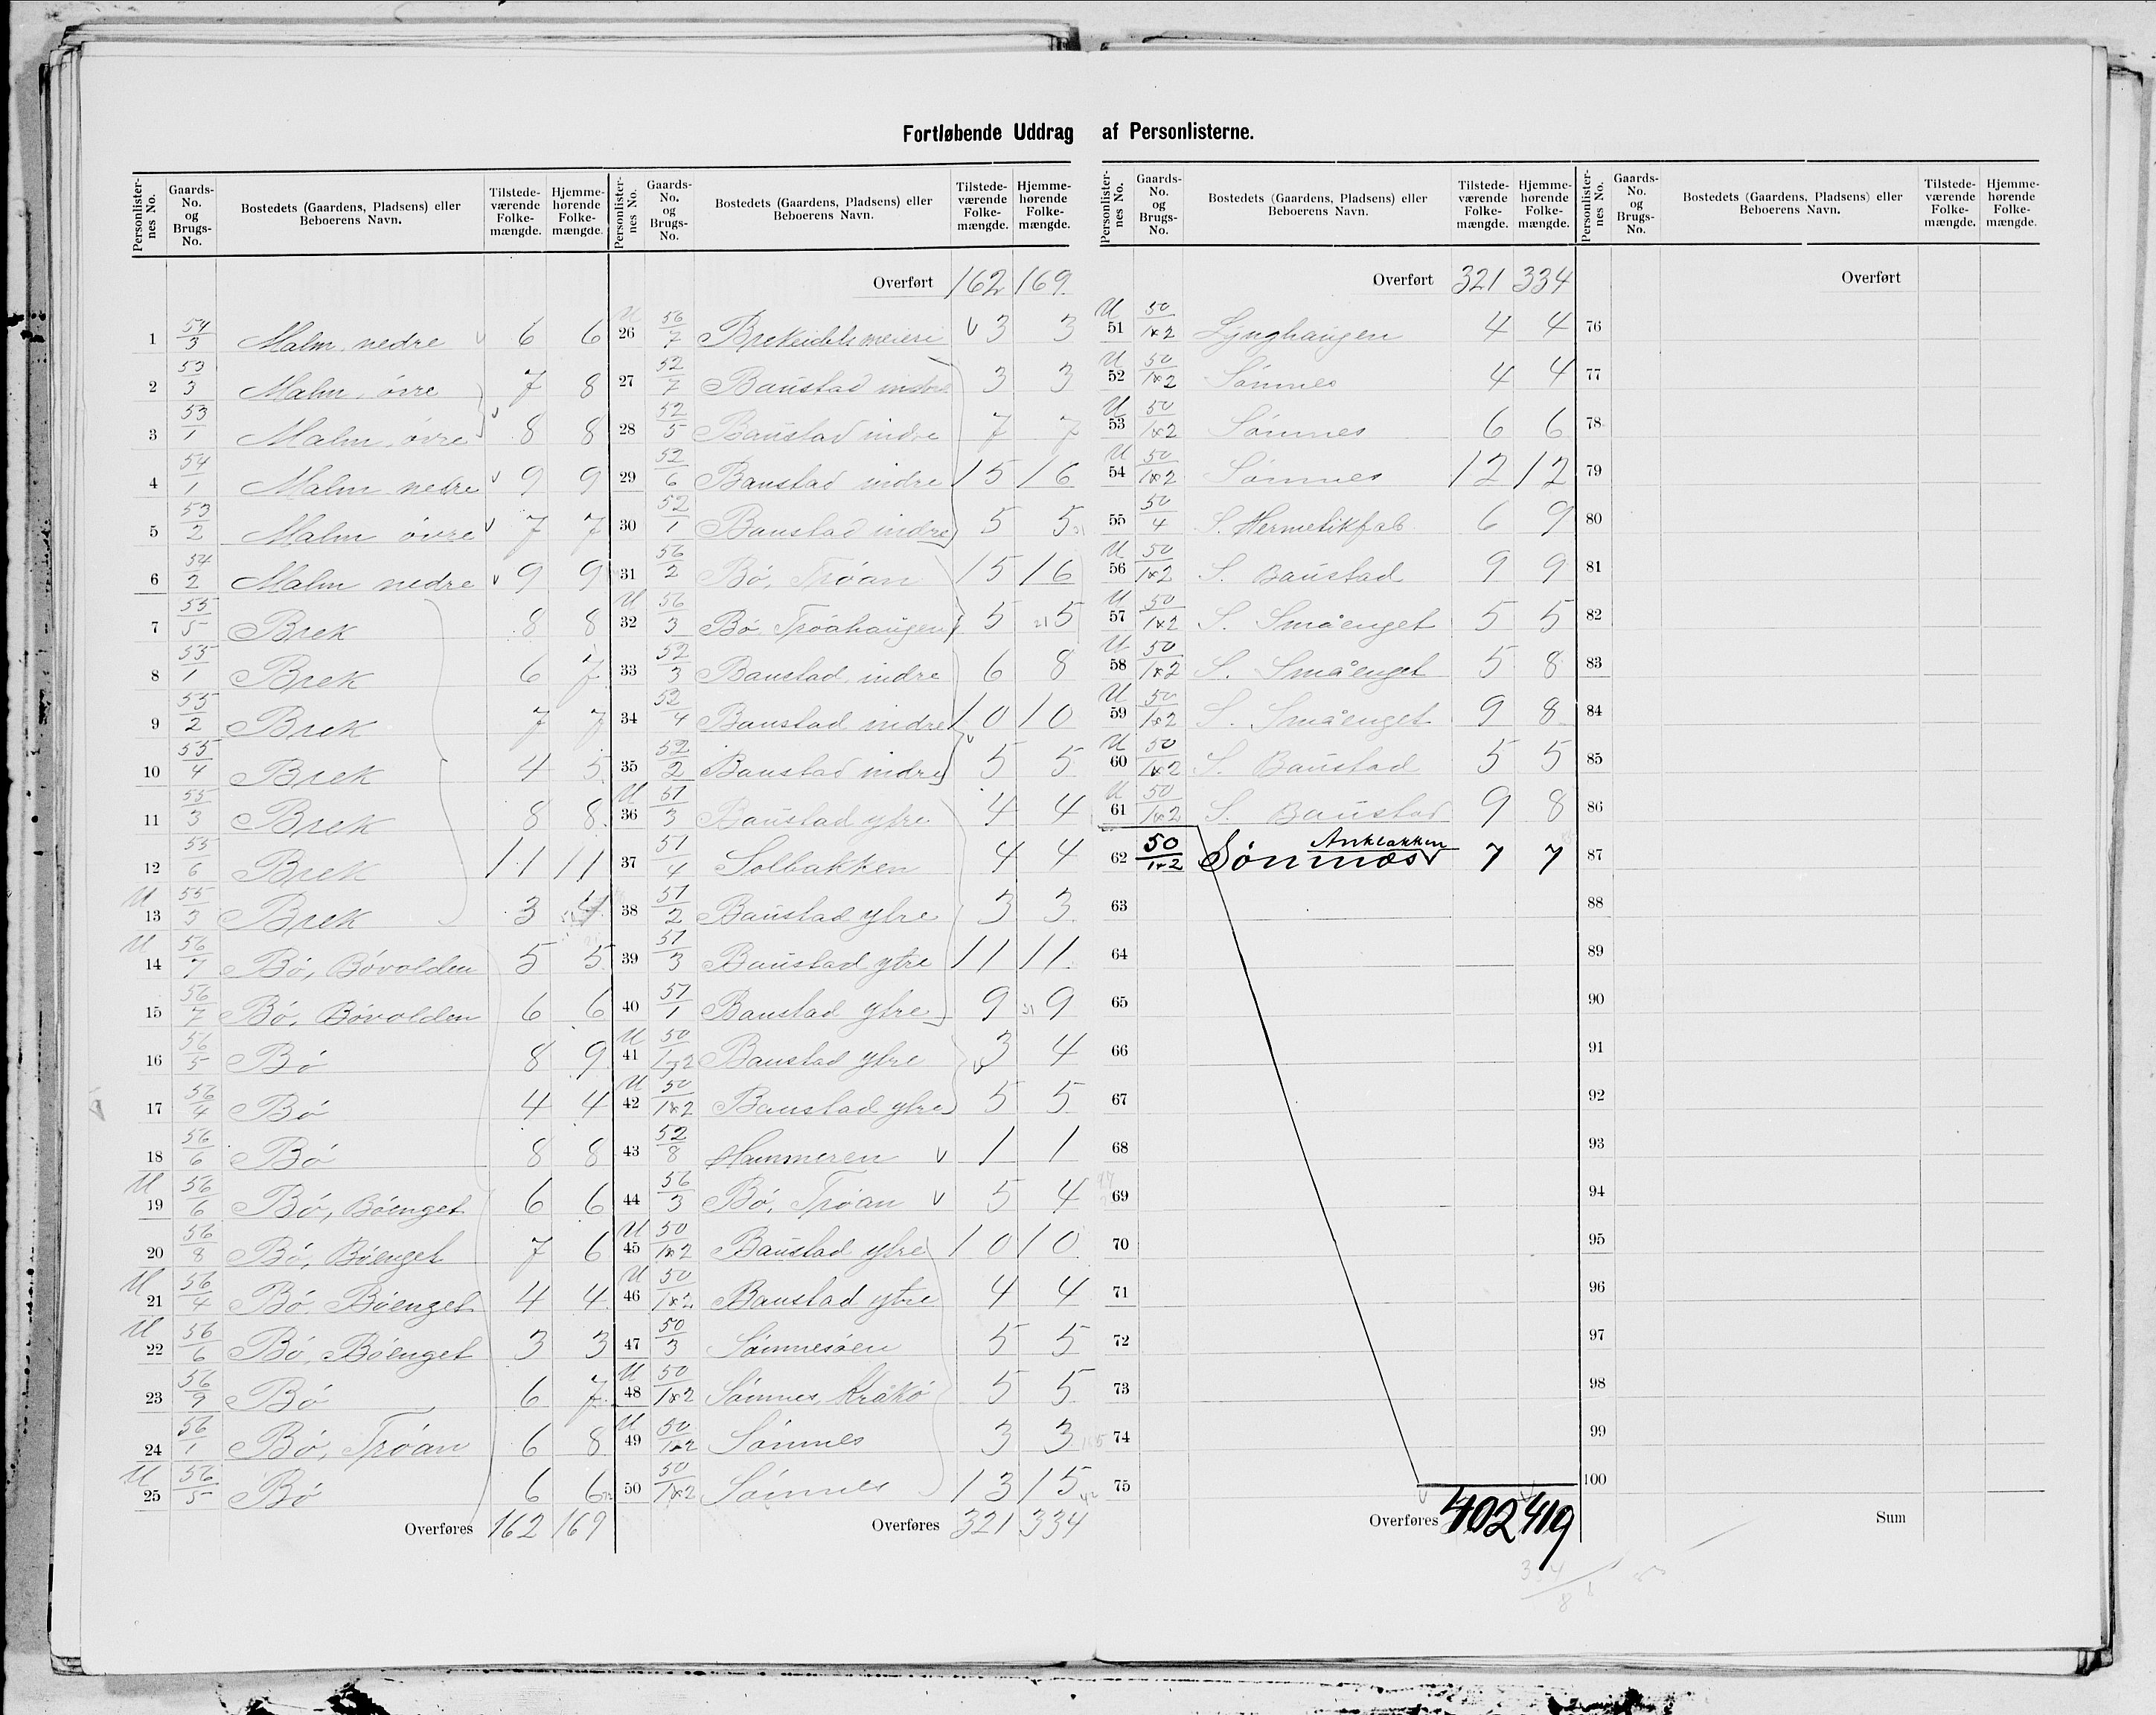 Fortløbende Uddrag af Personlisterne.
Personlister-nes No. Gaards-No. og Brugs-No. Bostedets (Gaardens, Pladsens) eller Beboerens Navn. Tilstede-værende Folke-mængde. Hjemme-hørende Folke-mængde.
1 54/3 Malm nedre v 6 6
2 53/3 Malm, øvre 7 8
3 53/1 Malm, øvre v 8 8
4 54/1 Malm nedre v 9 9
5 53/2 Malm øvre v 7 7
6 54/2 Malm nedre v 9 9
7 55/5 Brek 8 8
8 55/1 Brek 6 7
9 55/2 Brek 7 7
10 55/4 Brek 4 5
11 55/3 Brek 8 8
12 55/6 Brek 11 11
U 13 55/3 Brek 3 4
U 14 56/7 Bö, Bövolden 5 5
15 56/7 Bö, Bövolden 6 6
16 56/5 Bö 8 9
17 56/4 Bö 4 4
18 56/6 Bö 8 8
U 19 56/6 Bö, Böenget 6 6
20 56/8 Bö, Böenget 7 6
U 21 56/4 Bö, Böenget 4 4
U 22 56/6 Bö, Böenget 3 3
23 56/9 Bö 6 7
24 56/1 Bö, Trøan 6 8
U 25 56/5 Bö 6 6
Overføres 162 169
Personlister-nes No. Gaards-No. og Brugs-No. Bostedets (Gaardens, Pladsens) eller Beboerens Navn. Tilstede-værende Folke-mængde. Hjemme-hørende Folke-mængde.
Overført 162 169
U 26 56/7 Brekeidets meieri v 3 3
27 52/7 Baustad indre 3 3
28 52/5 Baustad indre 7 7
29 52/6 Baustad indre 15 16
30 52/1 Baustad indre 5 5
31 56/2 Bö, Trøan 15 16
U 32 56/3 Bö Trøahaugen 5 5
33 52/3 Baustad indre 6 8
34 52/4 Baustad indre 10 10
35 52/2 Baustad indre 5 5
U 36 51/3 Baustad ytre 4 4
37 51/4 Solbakken 4 4
38 51/2 Baustad ytre 3 3
39 51/3 Baustad ytre 11 11
40 51/1 Baustad ytre 9 9
U 41 50/1&2 Baustad ytre 3 4
U 42 50/1&2 Baustad ytre 5 5
43 52/8 Hammeren v 1 1
44 56/3 Bö, Trøan v 5 4
U 45 50/1&2 Baustad ytre 10 10
U 46 50/1&2 Baustad ytre 4 4
47 50/3 Sömnesöen 5 5
U 48 50/1&2 Sömnes, Kråkö 5 5
U 49 50/1&2 Sömnes 3 3
50 50/1&2 Sömnes 13 15
Overføres 321 334
Personlister-nes No. Gaards-No. og Brugs-No. Bostedets (Gaardens, Pladsens) eller Beboerens Navn. Tilstede-værende Folke-mængde. Hjemme-hørende Folke-mængde.
Overført 321 334
U 51 50/1&2 Lynghaugen 4 4
U 52 50/1&2 Sömnes 4 4
U 53 50/1&2 Sömnes 6 6
U 54 50/1&2 Sömnes 12 12
55 50/4 S. Hermetikfab 6 9
U 56 50/1&2 S. Baustad 9 9
U 57 50/1&2 S. Småenget 5 5
U 58 50/1&2 S. Småenget 5 8
U 59 50/1&2 S. Småenget 9 8
U 60 50/1&2 S. Baustad 5 5
U 61 50/1&2 S. Baustad 9 8
62 50/1&2 Sömnæs 7 7
63
64
65
66
67
68
69
70
71
72
73
74
75
Overføres 402 419
Personlister-nes No. Gaards-No. og Brugs-No. Bostedets (Gaardens, Pladsens) eller Beboerens Navn. Tilstede-værende Folke-mængde. Hjemme-hørende Folke-mængde.
Overført
76
77
78
79
80
81
82
83
84
85
86
87
88
89
90
91
92
93
94
95
96
97
98
99
100
Sum